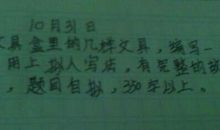 10月31日
文具盒里的几样文具，编写一
用上拟人写法，有完整的故
，题目自拟，350字以上。